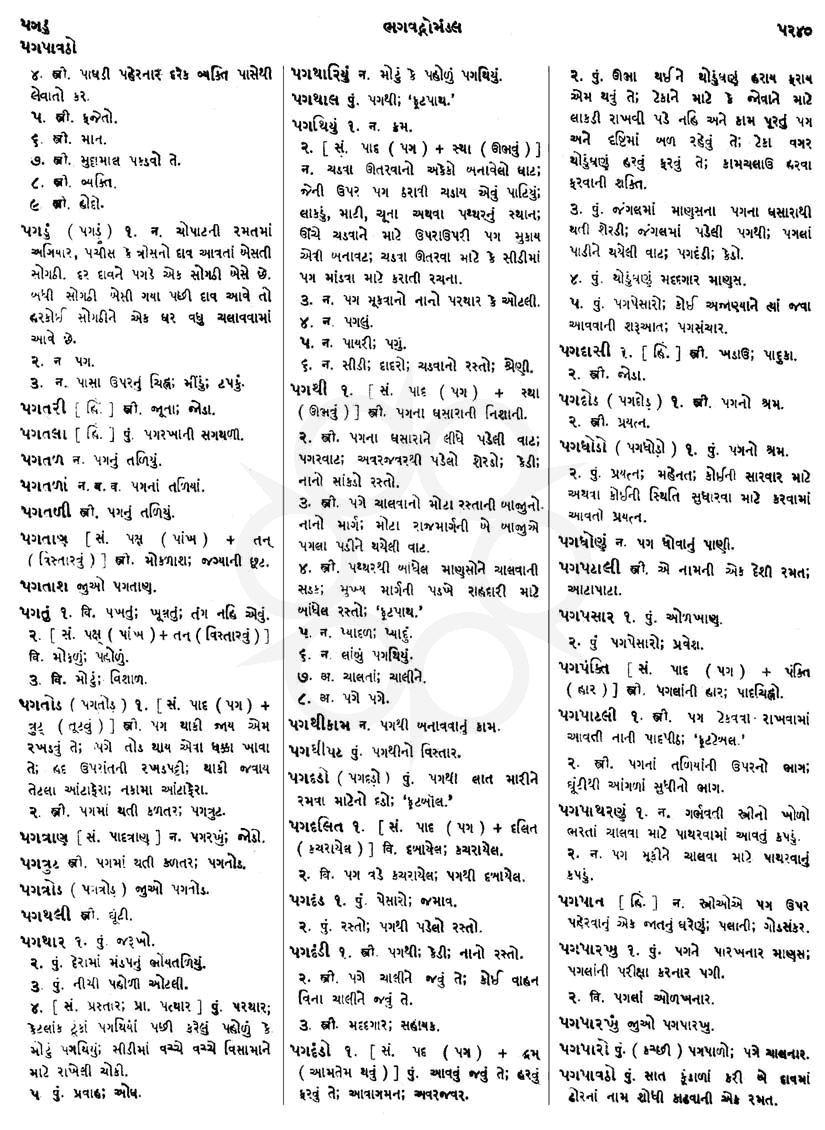 પગડું
ભગવદ્ગોમંડલ
૫૨૪૦
પગપાવઠો
૪. સ્ત્રી. પાઘડી પહેરનાર દરેક વ્યક્તિ પાસેથી
લેવાતો કર.
૫. સ્ત્રી. ફજેતો.
૬. સ્ત્રી. માન.
૭. સ્ત્રી. મુદ્દામાલ પકડવો તે.
૮. સ્ત્રી. વ્યક્તિ.
૯ સ્ત્રી. હોદો.
પગડું ( પગડું ) ૧. ન. ચોપાટની રમતમાં
અગિયાર, પચીસ કે ત્રીસનો દાવ આવતાં બેસતી
સોગઠી. દર દાવને પગડે એક સોગઠી બેસે છે.
બધી સોગઠી બેસી ગયા પછી દાવ આવે તો
હરકોઈ સોગઠીને એક ઘર વધુ ચલાવવામાં
આવે છે.
૨. ન પગ.
૩. ન. પાસા ઉપરનું ચિહ્ન; મીંડું; ટપકું.
પગતરી [ હિં. ] સ્ત્રી. જૂતા; જોડા.
પગતલા [ હિં. ] પું. પગરખાની સગથળી.
પગતળ ન. પગનું તળિયું.
પગતળાં ન. બ. વ. પગનાં તળિયાં.
પગતળી સ્ત્રી. પગનું તળિયું.
પગતાણ [ સં. પક્ષ ( પાંખ ) + તન્
( વિસ્તારવું ) ] સ્ત્રી. મોકળાશ; જગ્યાની છૂટ.
પગતાશ જુઓ પગતાણ.
પગતું ૧. વિ. પખતું; ખૂબતું; તંગ નહિ એવું.
૨. [ સં. પક્ષ્ ( પાંખ ) + તન્ ( વિસ્તારવું ) ]
વિ. મોકળું; પહોળું.
૩. વિ. મોટું; વિશાળ.
પગતોડ ( પગતોડ ) ૧. [ સં. પાદ ( પગ ) +
ત્રુટ્ ( તૂટવું ) ] સ્ત્રી. પગ થાકી જાય એમ
રખડવું તે; પગે તોડ થાય એવા ધક્કા ખાવા
તે; હદ ઉપરાંતની રખડપટ્ટી; થાકી જવાય
તેટલા આંટાફેરા; નકામા આંટાફેરા.
૨. સ્ત્રી. પગમાં થતી કળતર; પગત્રુટ.
પગત્રાણ [ સં. પાદત્રાણ ] ન. પગરખું; જોડો.
પગત્રુટ સ્ત્રી. પગમાં થતી કળતર; પગતોડ.
પગત્રોડ ( પગત્રોડ ) જુઓ પગતોડ.
પગથલી સ્ત્રી. ઘૂંટી.
પગથાર ૧. પું. જરૂખો.
૨. પું. દેરામાં મંડપનું ભોંયતળિયું.
૩. પું. નીચી પહોળી ઓટલી.
૪. [ સં. પ્રસ્તાર; પ્રા. પત્થાર ] પું. પરથાર;
કેટલાંક ટૂંકાં પગથિયાં પછી કરેલું પહોળું કે
મોટું પગથિયું; સીડીમાં વચ્ચે વચ્ચે વિસામાને
માટે રાખેલી ચોકી.
૫. પું. પ્રવાહ; ઓઘ.
પગથારિયું ન. મોટું કે પહોળું પગથિયું.
પગથાલ પું. પગથી; ‘ફૂટપાથ.’
પગથિયું ૧. ન. ક્રમ.
૨. [ સં. પાદ ( પગ ) + સ્થા ( ઊભવું ) ]
ન. ચડવા ઊતરવાનો અકેકો બનાવેલો ઘાટ;
જેની ઉપર પગ ઠરાવી ચડાય એવું પાટિયું;
લાકડું, માટી, ચૂના અથવા પથ્થરનું સ્થાન;
ઊંચે ચડવાને માટે ઉપરાઉપરી પગ મુકાય
એવી બનાવટ; ચડવા ઊતરવા માટે કે સીડીમાં
પગ માંડવા માટે કરાતી રચના.
૩. ન. પગ મૂકવાનો નાનો પરથાર કે ઓટલી.
૪. ન. પગલું.
૫. ન. પાયરી; પગું.
૬. ન. સીડી; દાદરો; ચડવાનો રસ્તો; શ્રેણી.
પગથી ૧. [ સં. પાદ ( પગ ) + સ્થા
( ઊભવું ) ] સ્ત્રી. પગના ઘસારાની નિશાની.
૨. સ્ત્રી. પગના ઘસારાને લીધે પડેલી વાટ;
પગરવાટ; અવરજવરથી પડેલો શેરડો; કેડી;
નાનો સાંકડો રસ્તો.
૩. સ્ત્રી. પગે ચાલવાનો મોટા રસ્તાની બાજુનો
નાનો માર્ગ; મોટા રાજમાર્ગની બે બાજુએ
પગલા પડીને થયેલી વાટ.
૪. સ્ત્રી. પથ્થરથી બાંધેલ માણસોને ચાલવાની
સડક; મુખ્ય માર્ગની પડખે રાહદારી માટે
બાંધેલ રસ્તો; ‘ફૂટપાથ.’
૫. ન. પ્યાદળ; પ્યાદું.
૬. ન. લાંબું પગથિયું.
૭. અ. ચાલતાં; ચાલીને.
૮. અ. પગે પગે.
પગથીકામ ન. પગથી બનાવવાનું કામ.
પગથીપટ પું. પગથીનો વિસ્તાર.
પગદડો ( પગદડો ) પું. પગથી લાત મારીને
રમવા માટેનો દડો; ‘ફૂટબૉલ.’
પગદલિત ૧. [ સં. પાદ ( પગ ) + દલિત
( કચરાયેલ ) ] વિ. દબાયેલ; કચરાયેલ.
૨. વિ. પગ વડે કચરાયેલ; પગથી દબાયેલ.
પગદંડ ૧. પું. પેસારો; જમાવ.
૨. પું. રસ્તો; પગથી પડેલો રસ્તો.
પગદંડી ૧. સ્ત્રી. પગથી; કેડી; નાનો રસ્તો.
૨. સ્ત્રી. પગે ચાલીને જવું તે; કોઈ વાહન
વિના ચાલીને જવું તે.
૩. સ્ત્રી. મદદગાર; સહાયક.
પગદંડો ૧. [ સં. પદ ( પગ ) + દ્રમ
( આમતેમ થવું ) ] પું. આવવું જવું તે; હરવું
ફરવું તે; આવાગમન; અવરજવર.
૨. પું. ઊભા થઈને થોડુંઘણું હરાય ફરાય
એમ થવું તે; ટેકાને માટે કે જોવાને માટે
લાકડી રાખવી પડે નહિ અને કામ પૂરતું પગ
અને દૃષ્ટિમાં બળ રહેવું તે; ટેકા વગર
થોડુંઘણું હરવું ફરવું તે; કામચલાઉ હરવા
ફરવાની શક્તિ.
૩. પું. જંગલમાં માણસના પગના ઘસારાથી
થતી શેરડી; જંગલમાં પડેલી પગથી; પગલાં
પાડીને થયેલી વાટ; પગદંડી; કેડો.
૪. પું. થોડુંઘણું મદદગાર માણસ.
૫. પું. પગપેસારો; કોઈ અજાણ્યાને ત્યાં જવા
આવવાની શરૂઆત; પગસંચાર.
પગદાસી ૧. [ હિં. ] સ્ત્રી. ખડાઉ; પાદુકા.
૨. સ્ત્રી. જોડા.
પગદોડ ( પગદોડ ) ૧. સ્ત્રી. પગનો શ્રમ.
૨. સ્ત્રી. પ્રયત્ન.
પગધોડો ( પગધોડો ) ૧. પું. પગનો શ્રમ.
૨. પું. પ્રયત્ન; મહેનત; કોઈની સારવાર માટે
અથવા કોઈની સ્થિતિ સુધારવા માટે કરવામાં
આવતો પ્રયત્ન.
પગધોણું ન. પગ ધોવાનું પાણી.
પગપટાલી સ્ત્રી. એ નામની એક દેશી રમત;
આટાપાટા.
પગપસાર ૧. પું. ઓળખાણ.
૨. પું પગપેસારો; પ્રવેશ.
પગપંક્તિ [ સં. પાદ ( પગ ) + પંક્તિ
( હાર ) ] સ્ત્રી. પગલાંની હાર; પાદચિહ્નો.
પગપાટલી ૧. સ્ત્રી. પગ ટેકવવા રાખવામાં
આવતી નાની પાદપીઠ; ‘ફૂટટેબલ.’
૨. સ્ત્રી. પગનાં તળિયાંની ઉપરનો ભાગ;
ઘૂંટીથી આંગળાં સુધીનો ભાગ.
પગપાથરણું ૧. ન. ગર્ભવતી સ્ત્રીનો ખોળો
ભરતાં ચાલવા માટે પાથરવામાં આવતું કપડું.
૨. ન. પગ મૂકીને ચાલવા માટે પાથરવાનું
કપડું.
પગપાન [ હિં. ] ન. સ્ત્રીઓએ પગ ઉપર
પહેરવાનું એક જાતનું ઘરેણું; પલાની; ગોડસંકર.
પગપારખુ ૧. પું. પગને પારખનાર માણસ;
પગલાંની પરીક્ષા કરનાર પગી.
૨. વિ. પગલાં ઓળખનાર.
પગપારખું જુઓ પગપારખુ.
પગપારો પું. ( કચ્છી ) પગપાળો; પગે ચાલનાર.
પગપાવઠો પું. સાત કૂંડાળાં કરી બે દાવમાં
ઢોરનાં નામ શોધી કાઢવાની એક રમત.